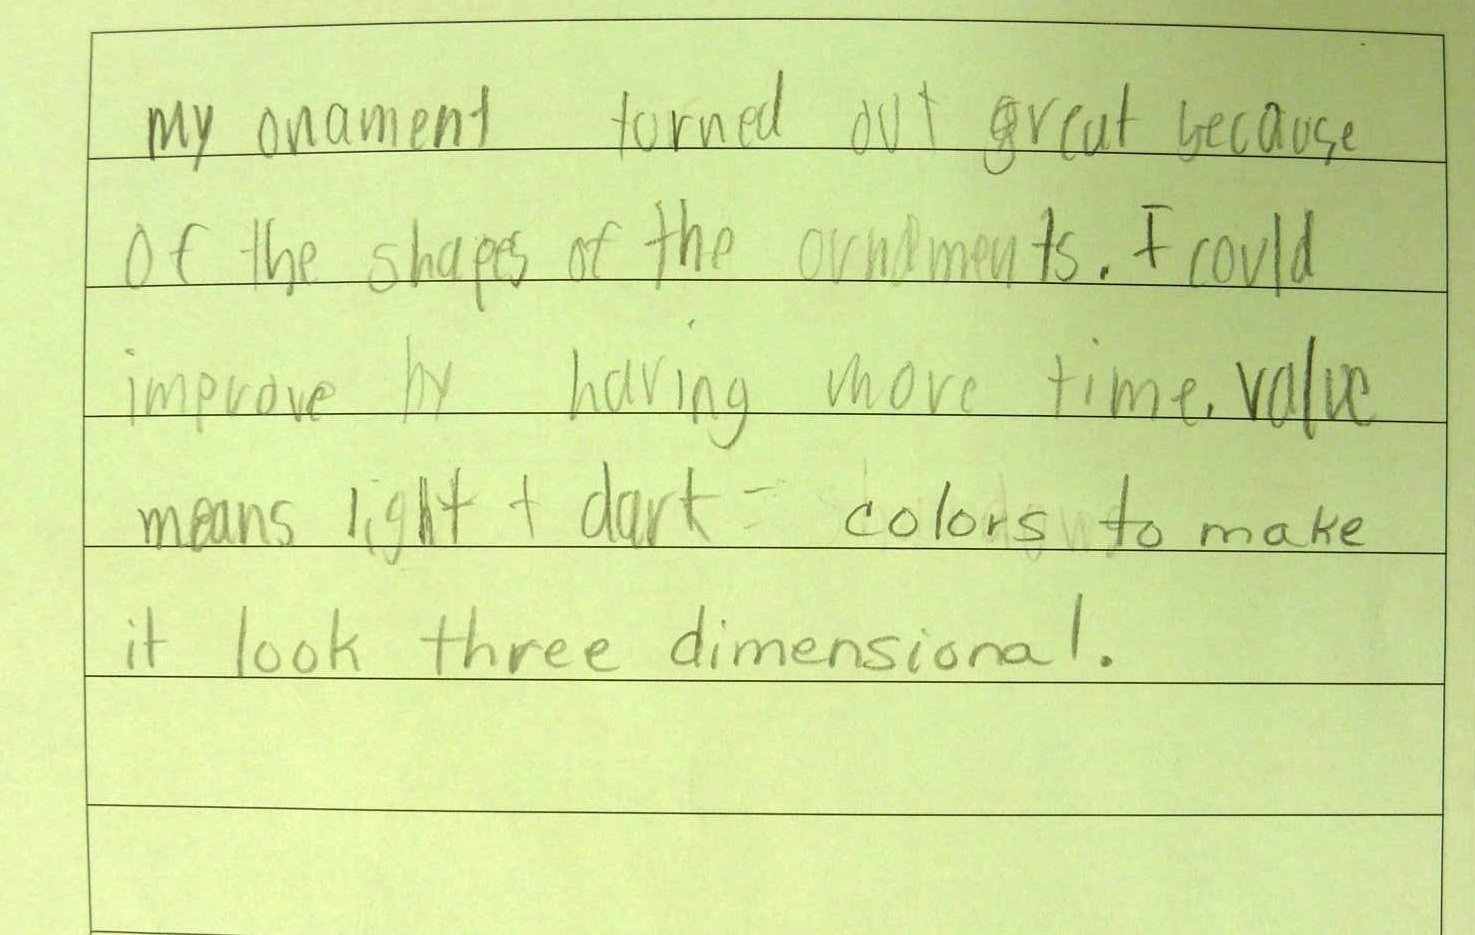 my onament turned out great because
of the shapes of the ornaments. I could
improve by having more time. value
means light + dark - colors to make
it look three dimensional.